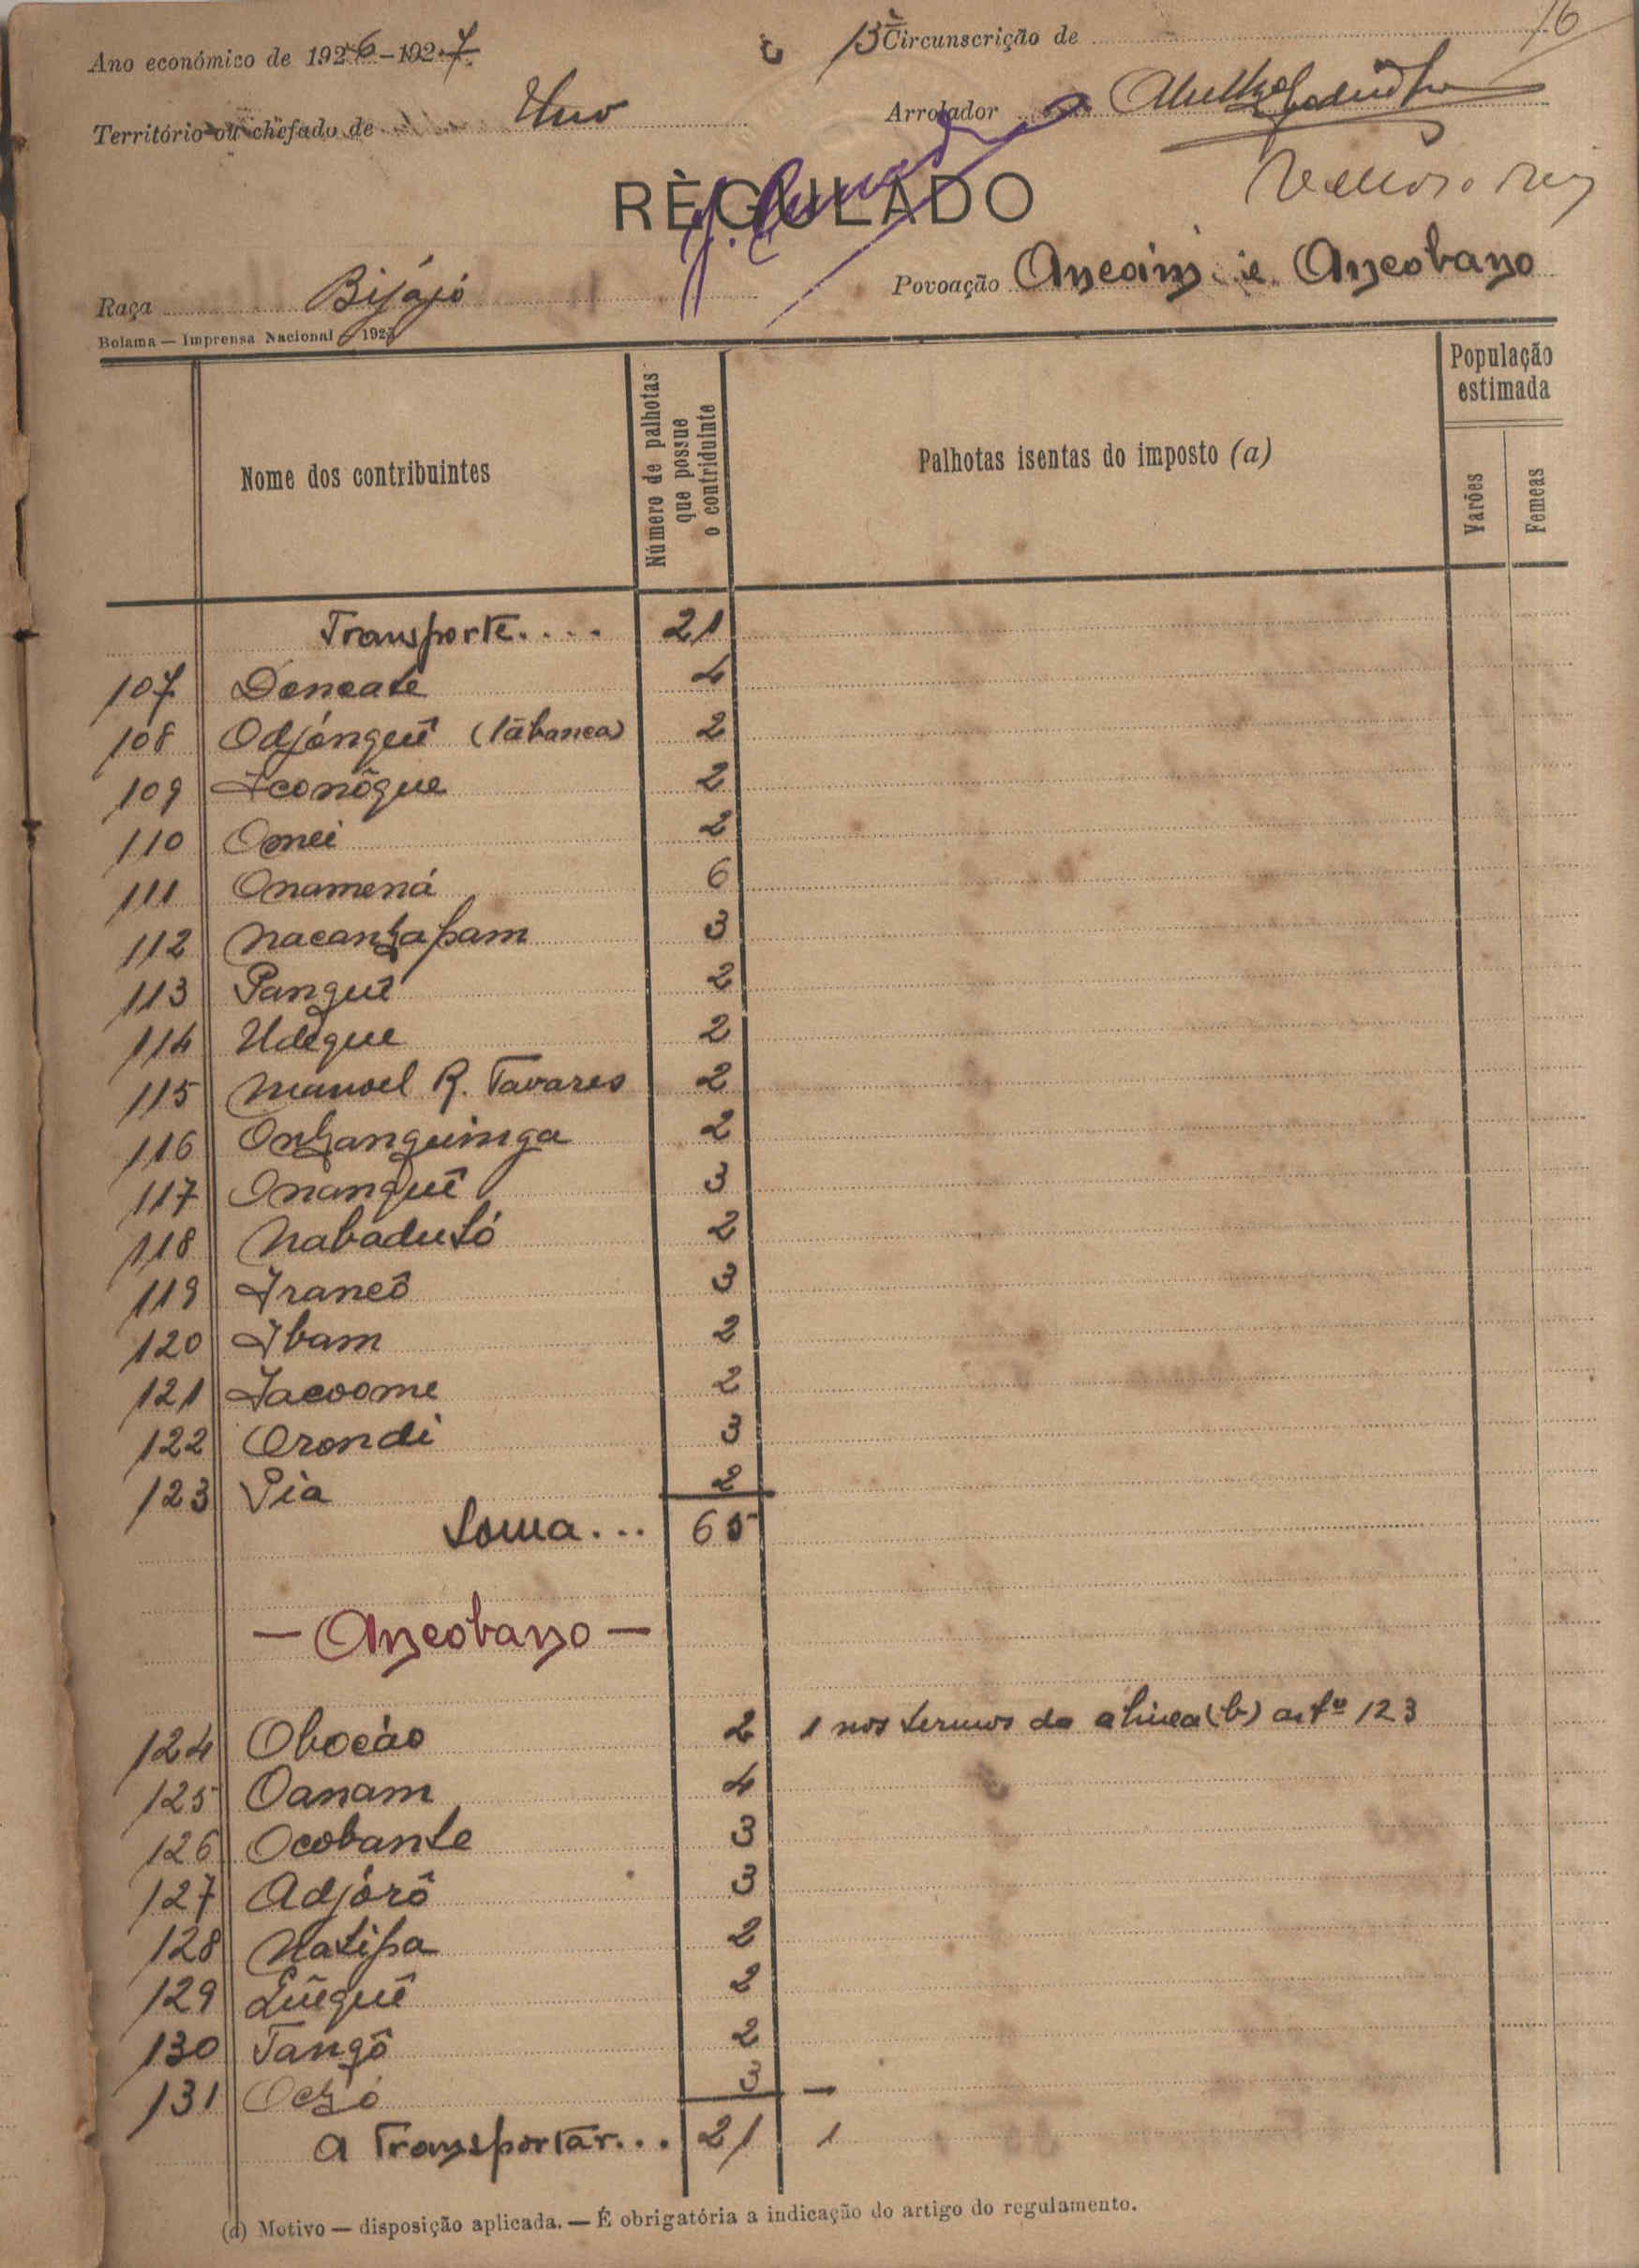 16
Ano económico de 1926-1927.
Circunscrição de
Território ou chefado de Uno
Arrolador
RÈGULADO
Raça Bijájó
Povoação Ancoim e Ancobano
Bolama — Imprensa Nacional — 192
Nome dos contribuintes
Número de palhotas que possue o contriduinte
Palhotas isentas do imposto (a)
População estimada
Varões
Femeas
Transporte.... 21
107 Doncate 4
108 Odjónguê (tabanca) 2
109 Iconôgue 2
110 Omei 2
111 Onamená 6
112 Nacanhapam 3
113 Panguê 2
114 Udégue 2
115 Manoel R. Tavares 2
116 Onhanguinga 2
117 Onanguê 3
118 Nabadutó 2
119 Irancô 3
120 Ibam 2
121 Jacoome 2
122 Orondi 3
123 Pia 2
Soma... 65
— Ancobano —
124 Obocáo 2 1 nos termos da alinea (b) artº 123
125 Oanam 4
126 Ocobante 3
127 Adjórô 3
128 Natipa 2
129 Luêguê 2
130 Tangô 2
131 Ochó 3
A Transportar... 21 1
(a) Motivo — disposição aplicada. — É obrigatória a indicação do artigo do regulamento.